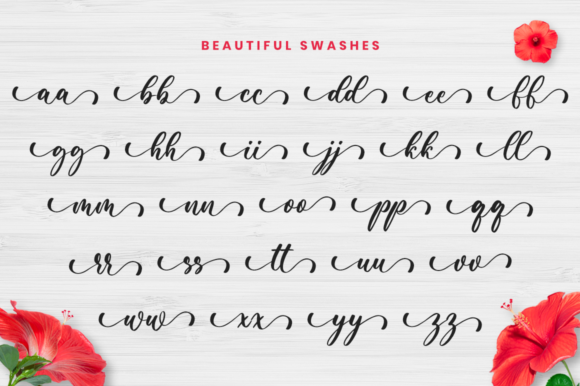 BEAUTIFUL SWASHES
aa bb cc dd ee ff
gg hh ii jj kk ll
mm nn oo pp qq
rr ss tt uu vv
ww xx yy zz